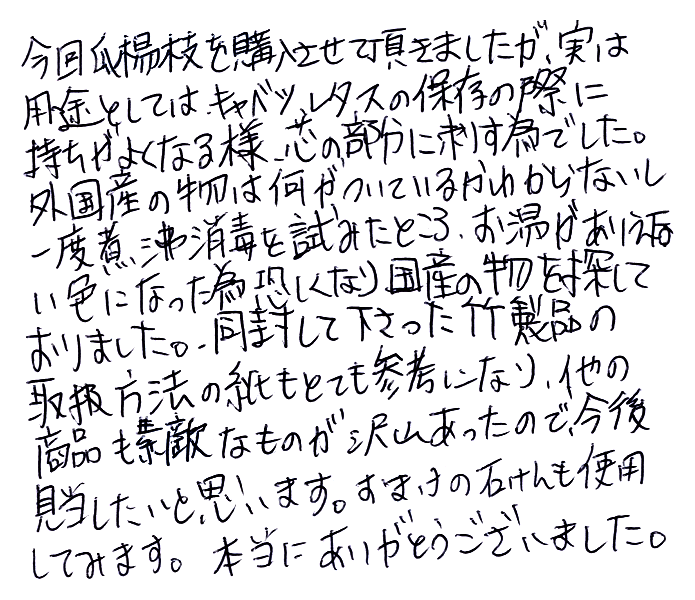 今回爪楊枝を購入させて頂きましたが、実は
用途としては、キャベツ、レタスの保存の際に
持ちがよくなる様、芯の部分に刺す為でした。
外国産の物は何がついているかわからないし
一度煮沸消毒を試みたところ、お湯がありえな
い色になった為恐しくなり国産の物を探して
おりました。同封して下さった竹製品の
取扱方法の紙もとても参考になり、他の
商品も素敵なものが沢山あったので、今後
見当したいと思います。おまけの石けんも使用
してみます。本当にありがとうございました。